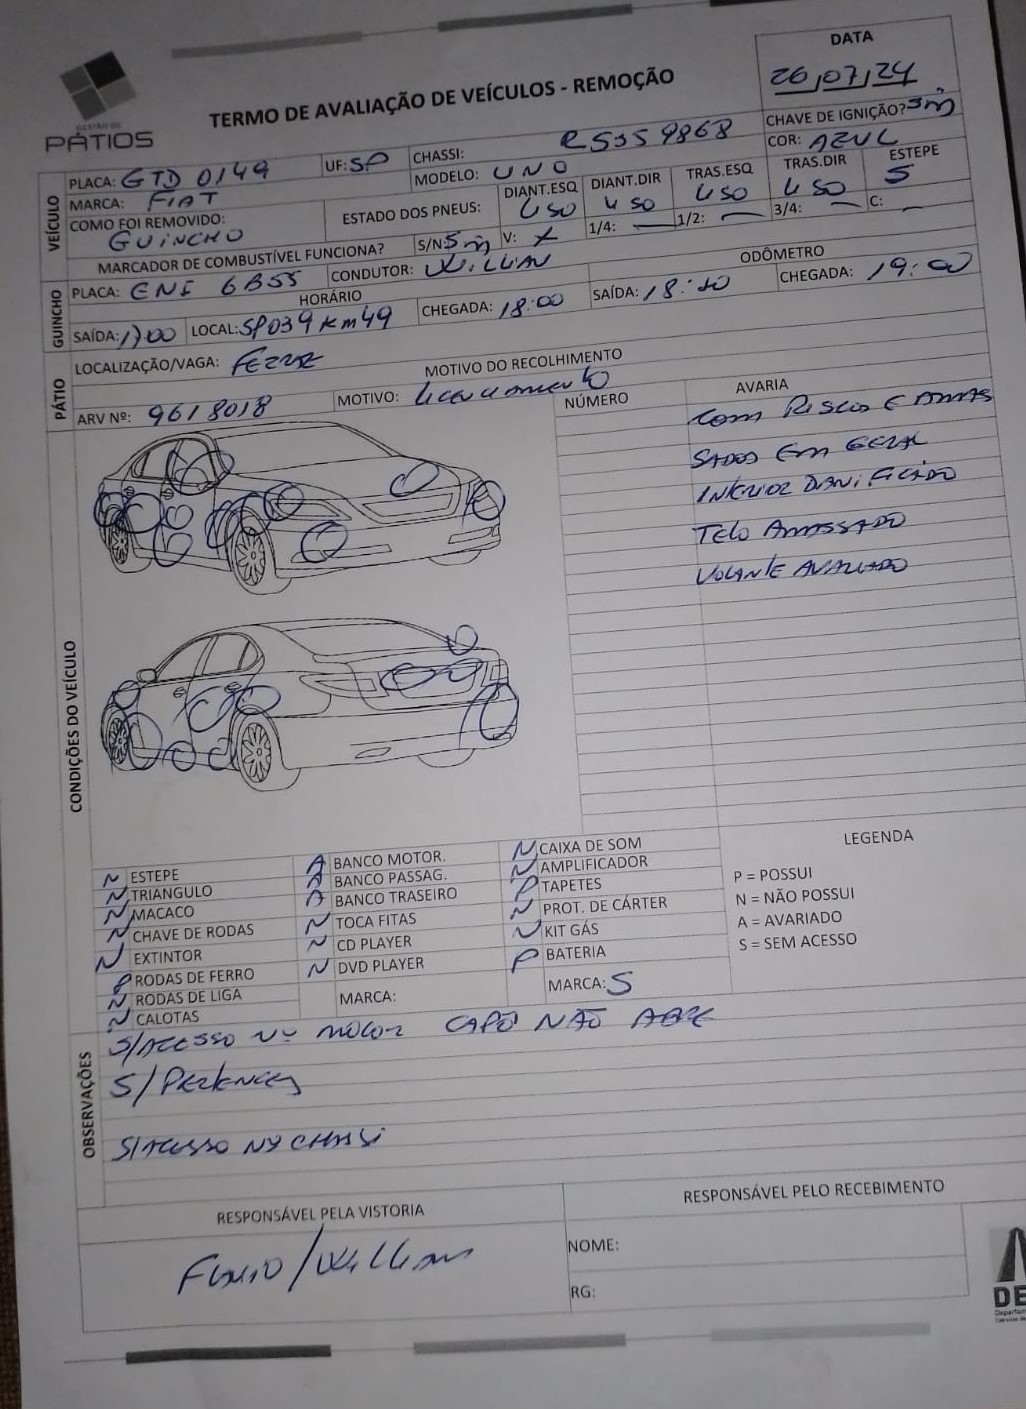 DATA
26/07/24
GESTÃO DE
PÁTIOS
TERMO DE AVALIAÇÃO DE VEÍCULOS - REMOÇÃO
CHAVE DE IGNIÇÃO? Sim
VEÍCULO
PLACA: GTD 0149 UF: SP CHASSI: R5359868 COR: AZUL
MARCA: FIAT MODELO: UNO
COMO FOI REMOVIDO: GUINCHO
ESTADO DOS PNEUS: DIANT.ESQ USO DIANT.DIR USO TRAS.ESQ USO TRAS.DIR USO ESTEPE S
MARCADOR DE COMBUSTÍVEL FUNCIONA? S/N: Sim V: X 1/4: — 1/2: — 3/4: — C: —
GUINCHO
PLACA: ENI 6B55 CONDUTOR: Willian
HORÁRIO ODÔMETRO
SAÍDA: 17:00 LOCAL: SP039 Km49 CHEGADA: 18:00 SAÍDA: CHEGADA: 19:00
PÁTIO
LOCALIZAÇÃO/VAGA: Ferraz
MOTIVO DO RECOLHIMENTO
ARV Nº: 9618018 MOTIVO: licenciamento
CONDIÇÕES DO VEÍCULO
NÚMERO AVARIA
Com Riscos E AMAS
SADOS Em GERAL
INTERIOR DANIFICADO
TETO AMASSADO
VOLANTE AVARIADO
N ESTEPE A BANCO MOTOR. N CAIXA DE SOM
N TRIANGULO A BANCO PASSAG. N AMPLIFICADOR
N MACACO A BANCO TRASEIRO P TAPETES
N CHAVE DE RODAS N TOCA FITAS N PROT. DE CÁRTER
N EXTINTOR N CD PLAYER N KIT GÁS
P RODAS DE FERRO N DVD PLAYER P BATERIA
N RODAS DE LIGA MARCA: MARCA: S
N CALOTAS
LEGENDA
P = POSSUI
N = NÃO POSSUI
A = AVARIADO
S = SEM ACESSO
OBSERVAÇÕES
S/ACESSO Nº MOTOR CAPÔ NÃO ABRE
S/PERTENCES
S/ACESSO Nº CHASSI
RESPONSÁVEL PELA VISTORIA
Flavio/Willian
RESPONSÁVEL PELO RECEBIMENTO
NOME:
RG:
DE